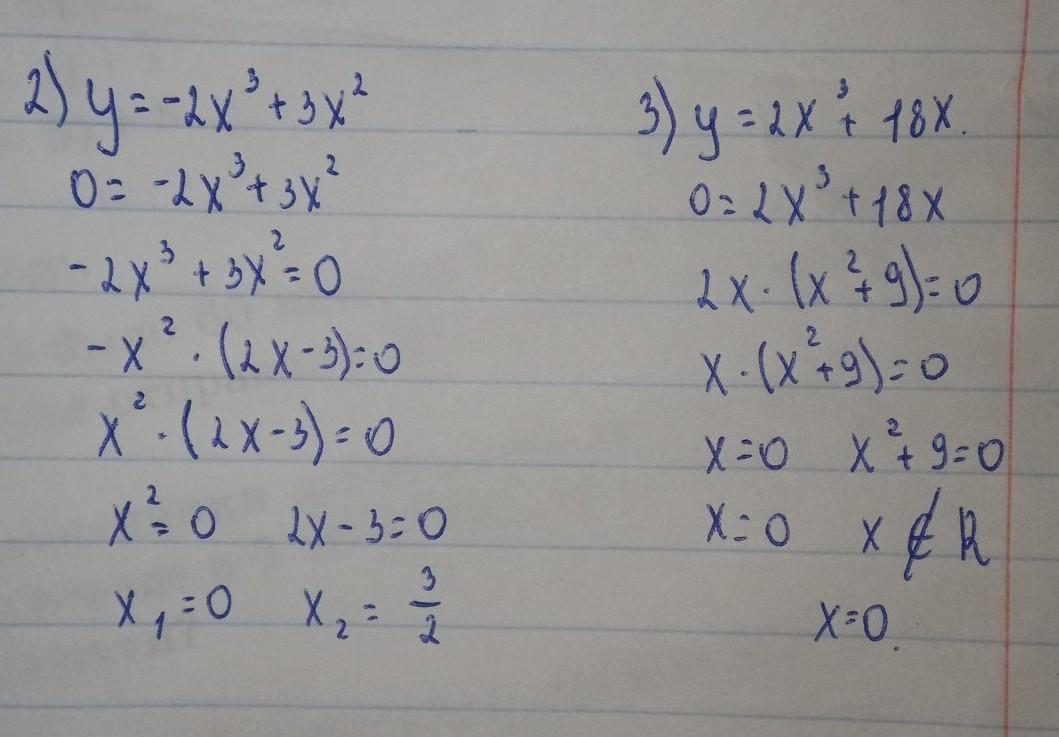 2) y = -2x³ + 3x²
0 = -2x³ + 3x²
-2x³ + 3x² = 0
-x² · (2x-3) = 0
x² · (2x-3) = 0
x² = 0   2x - 3 = 0
x₁ = 0   x₂ = 3/2
3) y = 2x³ + 18x.
0 = 2x³ + 18x
2x · (x² + 9) = 0
x · (x² + 9) = 0
x = 0   x² + 9 = 0
x = 0   x ∉ R
x = 0.